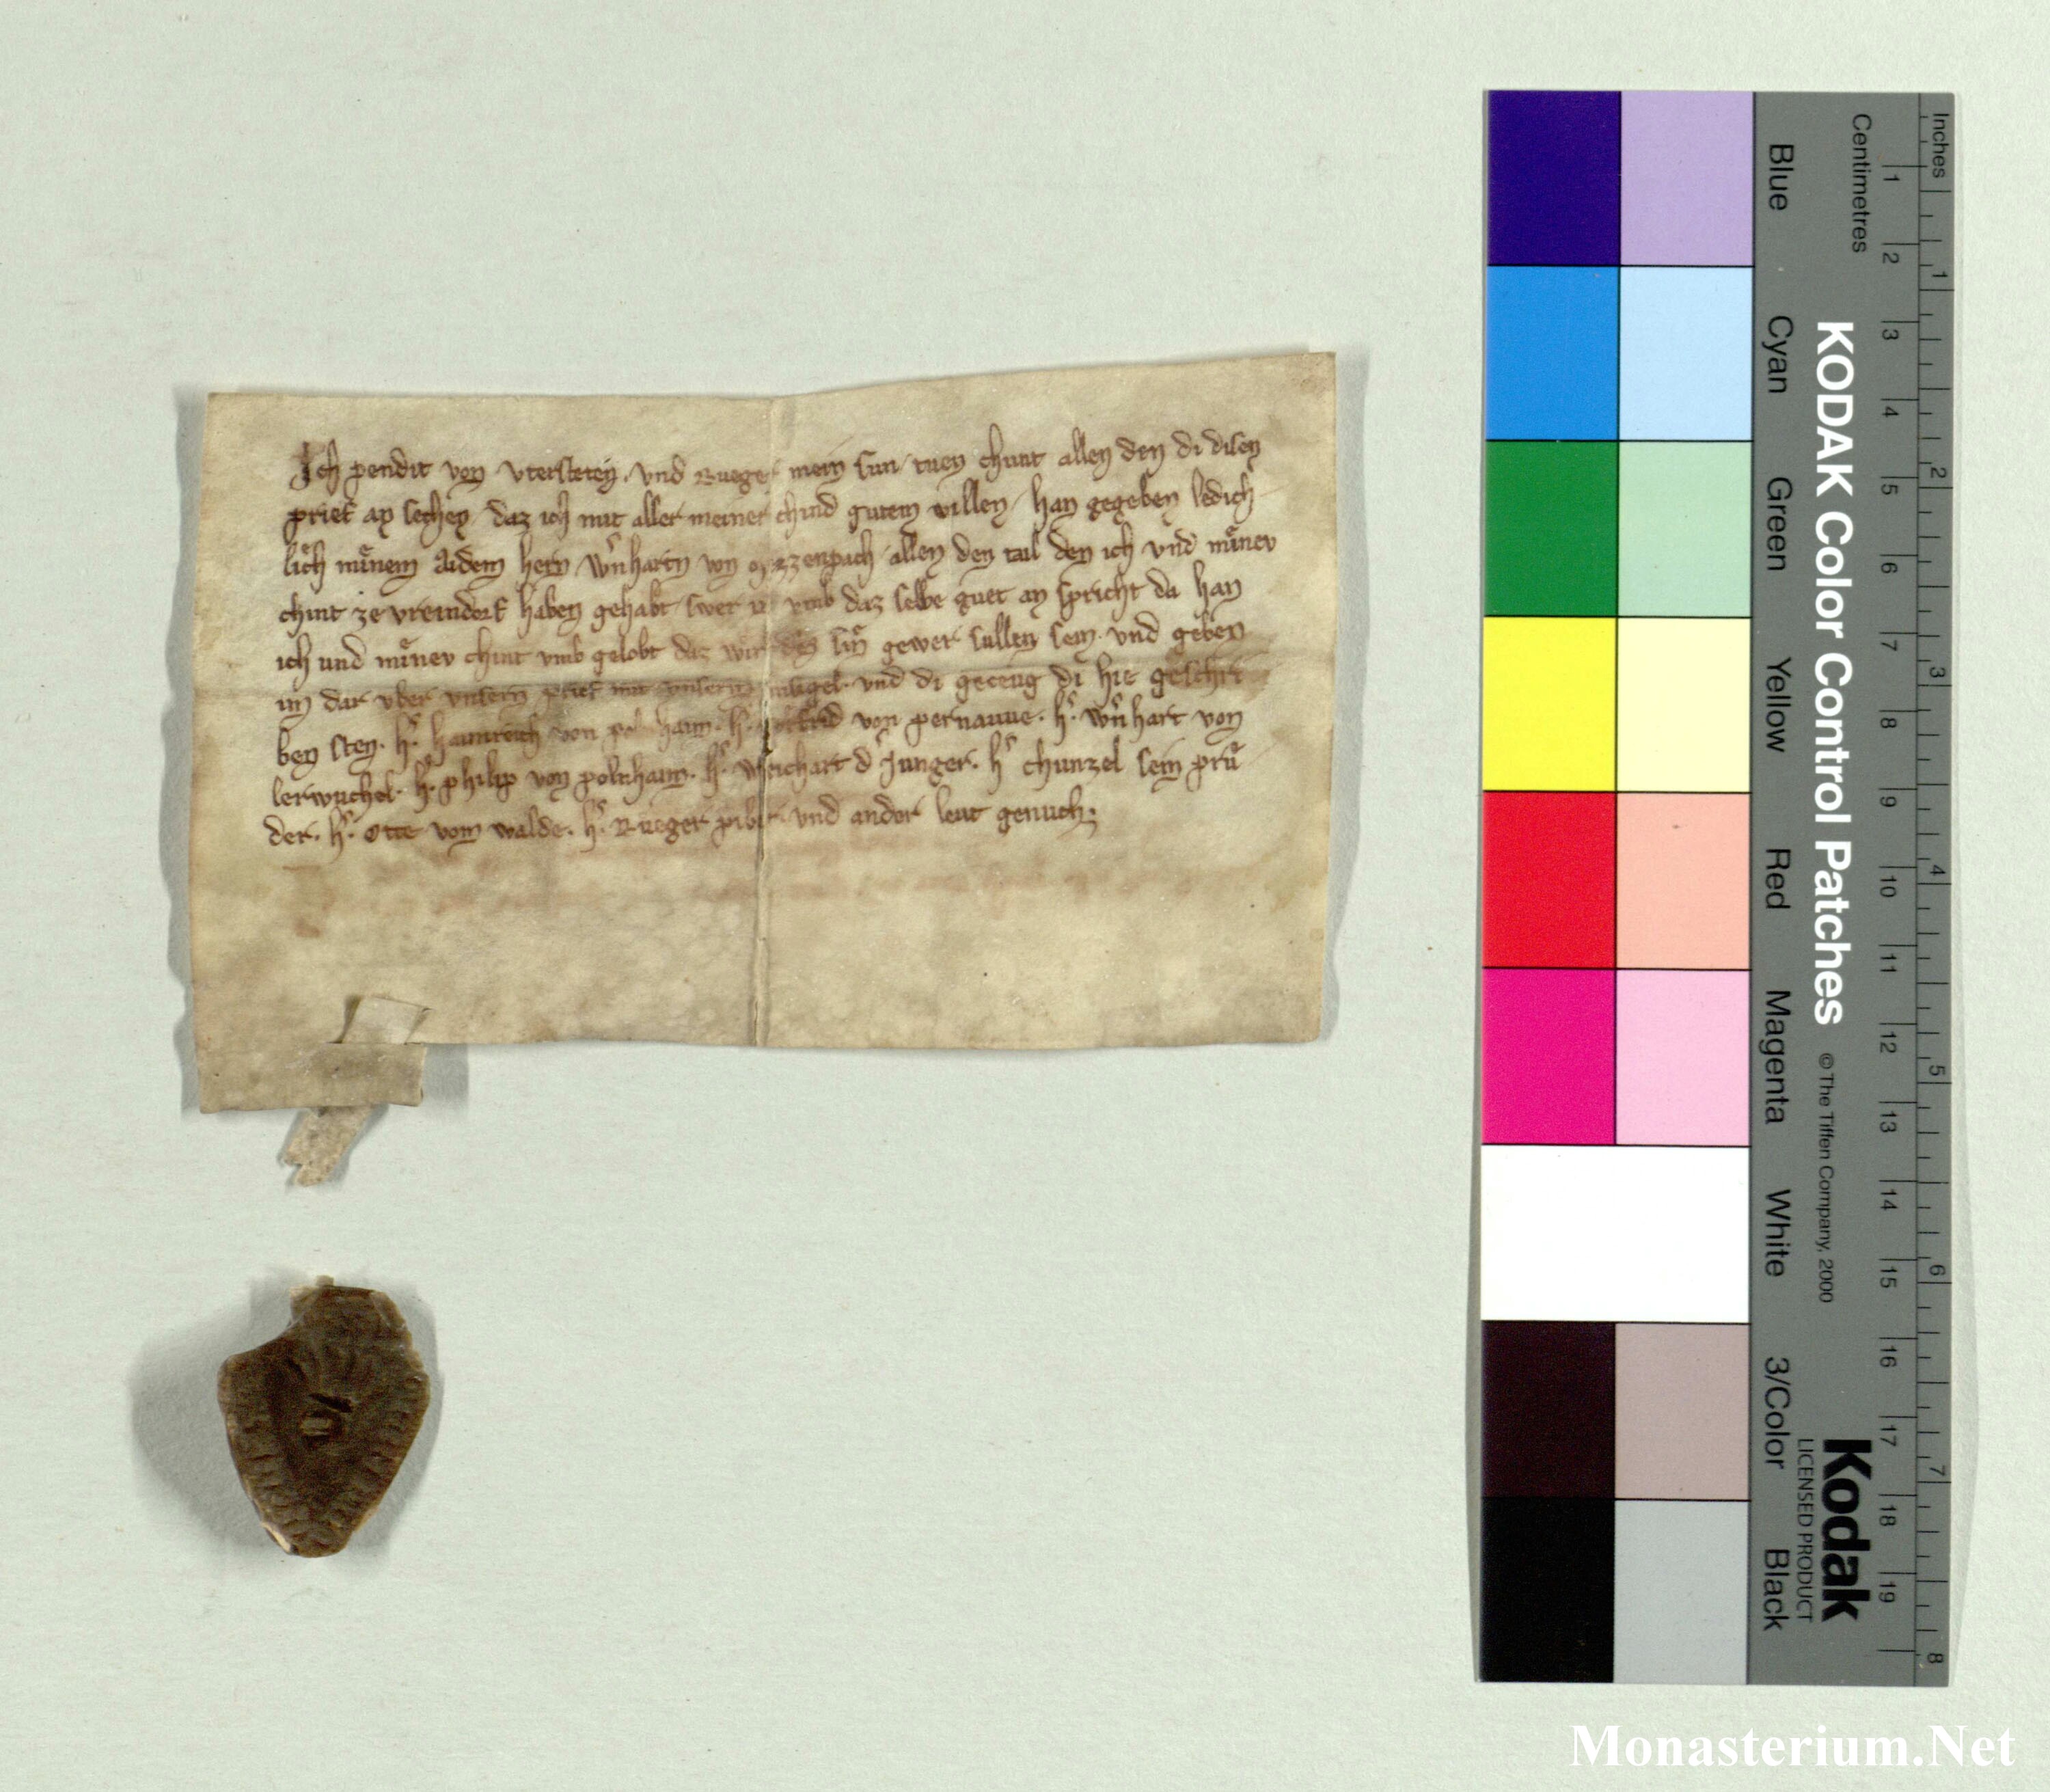 Ich pendit von vtersteten. vnd Rueger mein sun tuen chunt allen den di disen
prief an sechen daz ich mit aller meiner chind gutem willen han gegeben ledich
lich mænem Aidem hern wn̄hartn von allen den tail den ich vnd mænev
chint ze vreindorf haben gehabt swer vmb daz selbe guet an spricht da han
ich und mænev chint vmb gelobt daz wir des gewer sullen sein. vnd geben
im dar vber vnsern prief mit vnserm insigel. vnd di geceug di hie geschri
ben sten. h̄. Hainreich von haim. h̄. von pernauue. h̄. wn̄hart von
lerwuchel. h̄. philip von polnhaim. h̄. Weichart d̄ Junger. h̄ chunzel sein prů
der. h̄. Otte vom walde. h̄. Rueger piber. vnd ander leut genuch.
Inches
Centimetres
1 2 3 4 5 6 7 8 9 10 11 12 13 14 15 16 17 18 19
1 2 3 4 5 6 7 8
KODAK Color Control Patches
© The Tiffen Company, 2000
Kodak
LICENSED PRODUCT
Blue
Cyan
Green
Yellow
Red
Magenta
White
3/Color
Black
Monasterium.Net